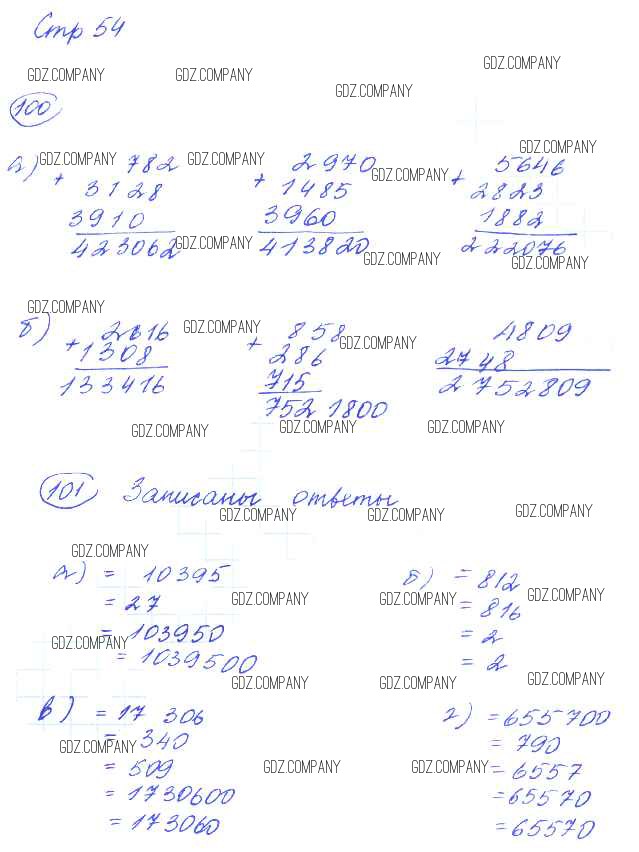 Стр 54
GDZ.COMPANY GDZ.COMPANY GDZ.COMPANY GDZ.COMPANY
100
а) GDZ.COMPANY 782 GDZ.COMPANY 2970 GDZ.COMPANY 5646 GDZ.COMPANY
+ 3128 + 1485 + 2823
3910 3960 1882
423062 GDZ.COMPANY 413820 GDZ.COMPANY 222076 GDZ.COMPANY
GDZ.COMPANY
б) 2616 GDZ.COMPANY 858 GDZ.COMPANY 4809
+ 1308 + 286 2748
133416 715 2752809
7521800
GDZ.COMPANY GDZ.COMPANY GDZ.COMPANY
101 Записаны ответы
GDZ.COMPANY GDZ.COMPANY GDZ.COMPANY
GDZ.COMPANY
а) = 10395 б) = 812
= 27 GDZ.COMPANY GDZ.COMPANY = 816 GDZ.COMPANY
GDZ.COMPANY = 103950 = 2
= 1039500 = 2
GDZ.COMPANY GDZ.COMPANY GDZ.COMPANY
в) = 17 306 г) = 655700
GDZ.COMPANY = 340 = 790
= 509 GDZ.COMPANY GDZ.COMPANY = 6557
= 1730600 = 65570
= 173060 = 65570